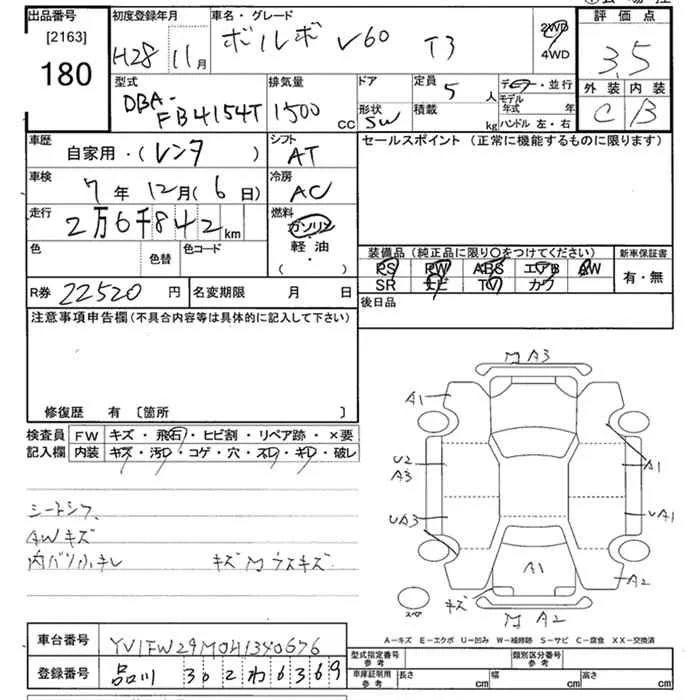 出品番号
[2163]
180
初度登録年月
H28 11月
車名・グレード
ボルボ V60 T3
2WD
4WD
評価点
3.5
外装 内装
C B
型式
DBA-
FB4154T
排気量
1500 CC
ドア
形状
SW
定員 5 人
積載 kg
ディーラー・並行
モデル年式 年
ハンドル 左・右
車歴
自家用・(レンタ )
シフト
AT
セールスポイント (正常に機能するものに限ります)
車検
7年 12月 (6日)
冷房
AC
走行
2万6千842km
燃料
ガソリン
軽・油
・( )
色
色替
色コード
装備品 (純正品に限り〇をつけてください)
新車保証書
PS PW ABS エアB AW
SR ナビ TV カワ
有・無
R券 22520 円
名変期限 月 日
後日品
注意事項申告欄 (不具合内容等は具体的に記入して下さい)
修復歴 有 〔箇所 〕
検査員
記入欄
FW キズ・飛石・ヒビ割・リペア跡・×要
内装 キズ・汚レ・コゲ・穴・スレ・キレ・破レ
AWキズ
キズM ウスキズ
M A3
A1
U2
A3
A1
UA3
UA1
A1
A2
キズ
M A2
スペア
A-キズ E-エクボ U-凹み W-補修跡 S-サビ C-腐食 XX-交換済
車台番号
登録番号 品川 302 わ 6369
型式指定番号
参考
類別区分番号
参考
車庫証明用
参考
長さ cm
幅 cm
高さ cm